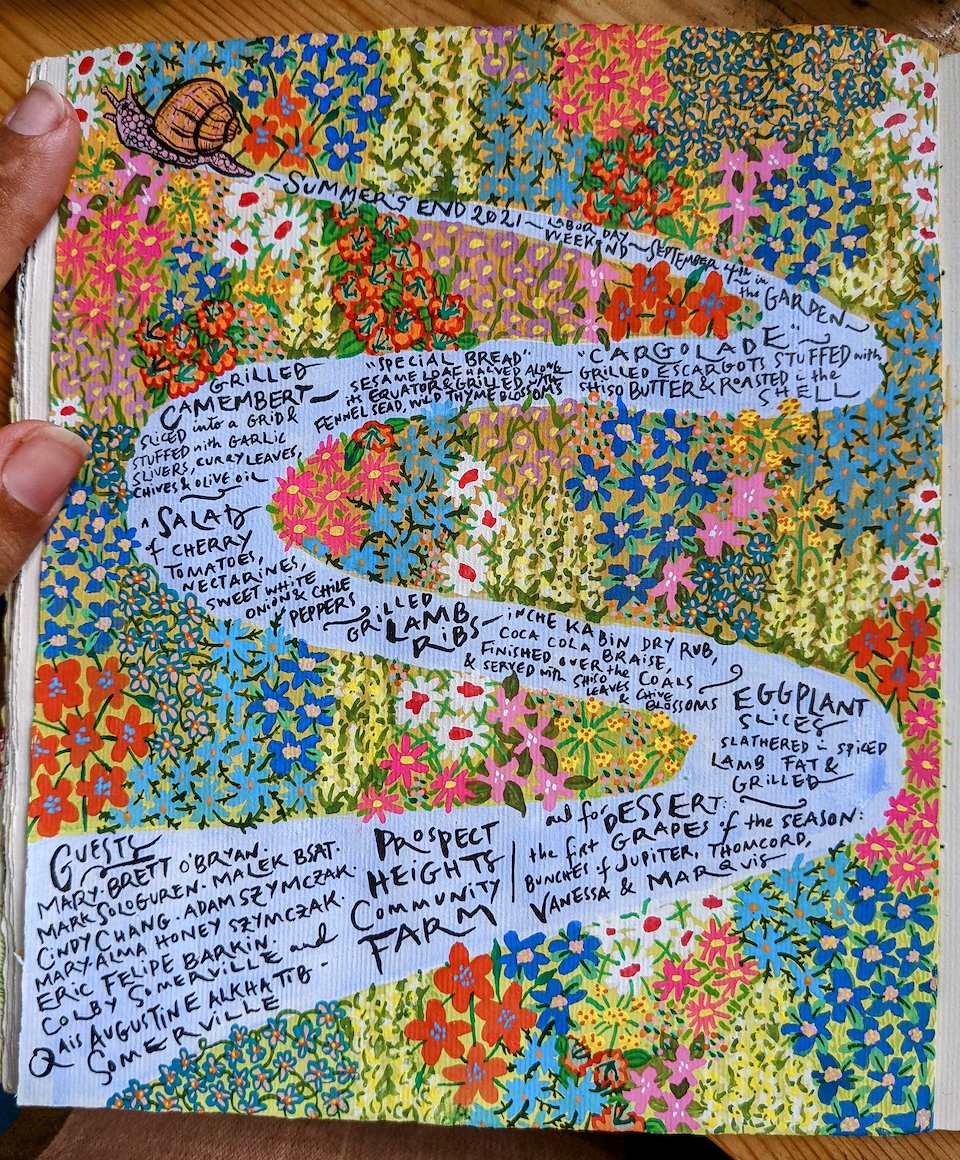 ~SUMMER'S END 2021~ LABOR DAY WEEKEND ~ SEPTEMBER 4th in the GARDEN~
"CARGOLADE"~
GRILLED ESCARGOTS STUFFED with
SHISO BUTTER & ROASTED in the
SHELL
"SPECIAL BREAD":
SESAME LOAF HALVED ALONG
its EQUATOR & GRILLED with
FENNEL SEAD, WILD THYME BLOSSOMS
GRILLED
CAMEMBERT~
SLICED into a GRID &
STUFFED with GARLIC
SLIVERS, CURRY LEAVES,
CHIVES & OLIVE OIL
A SALAD
of CHERRY
TOMATOES,
NECTARINES,
SWEET WHITE
ONION & CHILE
PEPPERS
GRILLED
LAMB
RIBS~
INCHE KABIN DRY RUB,
COCA COLA BRAISE,
FINISHED OVER the COALS
& SERVED with SHISO
LEAVES & CHIVE
BLOSSOMS
EGGPLANT
SLICES
SLATHERED in SPICED
LAMB FAT &
GRILLED
and for DESSERT:
the first GRAPES of the SEASON:
BUNCHES of JUPITER, THOMCORD,
VANESSA & MARQUIS
PROSPECT
HEIGHTS
COMMUNITY
FARM
GUESTS
MARY·BRETT O'BRYAN·
MARK SOLOGUREN·MALEK BSAT·
CINDY CHANG·ADAM SZYMCZAK·
MARY·ALMA HONEY SZYMCZAK·
ERIC FELIPE BARKIN·
COLBY SOMERVILLE and
QAIS AUGUSTINE ALKHATIB-
SOMERVILLE